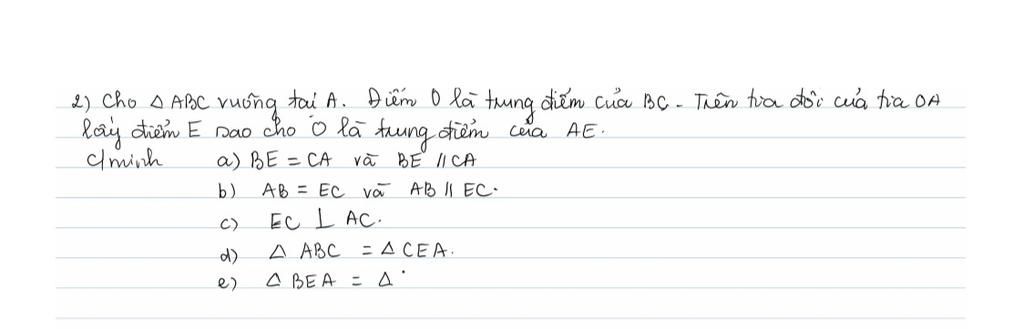 2) Cho △ ABC vuông tại A. Điểm O là trung điểm của BC - Trên tia đối của tia OA
lấy điểm E sao cho O là trung điểm của AE.
c/minh a) BE = CA và BE // CA
b) AB = EC và AB // EC.
c) EC ⊥ AC.
d) △ ABC = △ CEA.
e) △ BEA = △